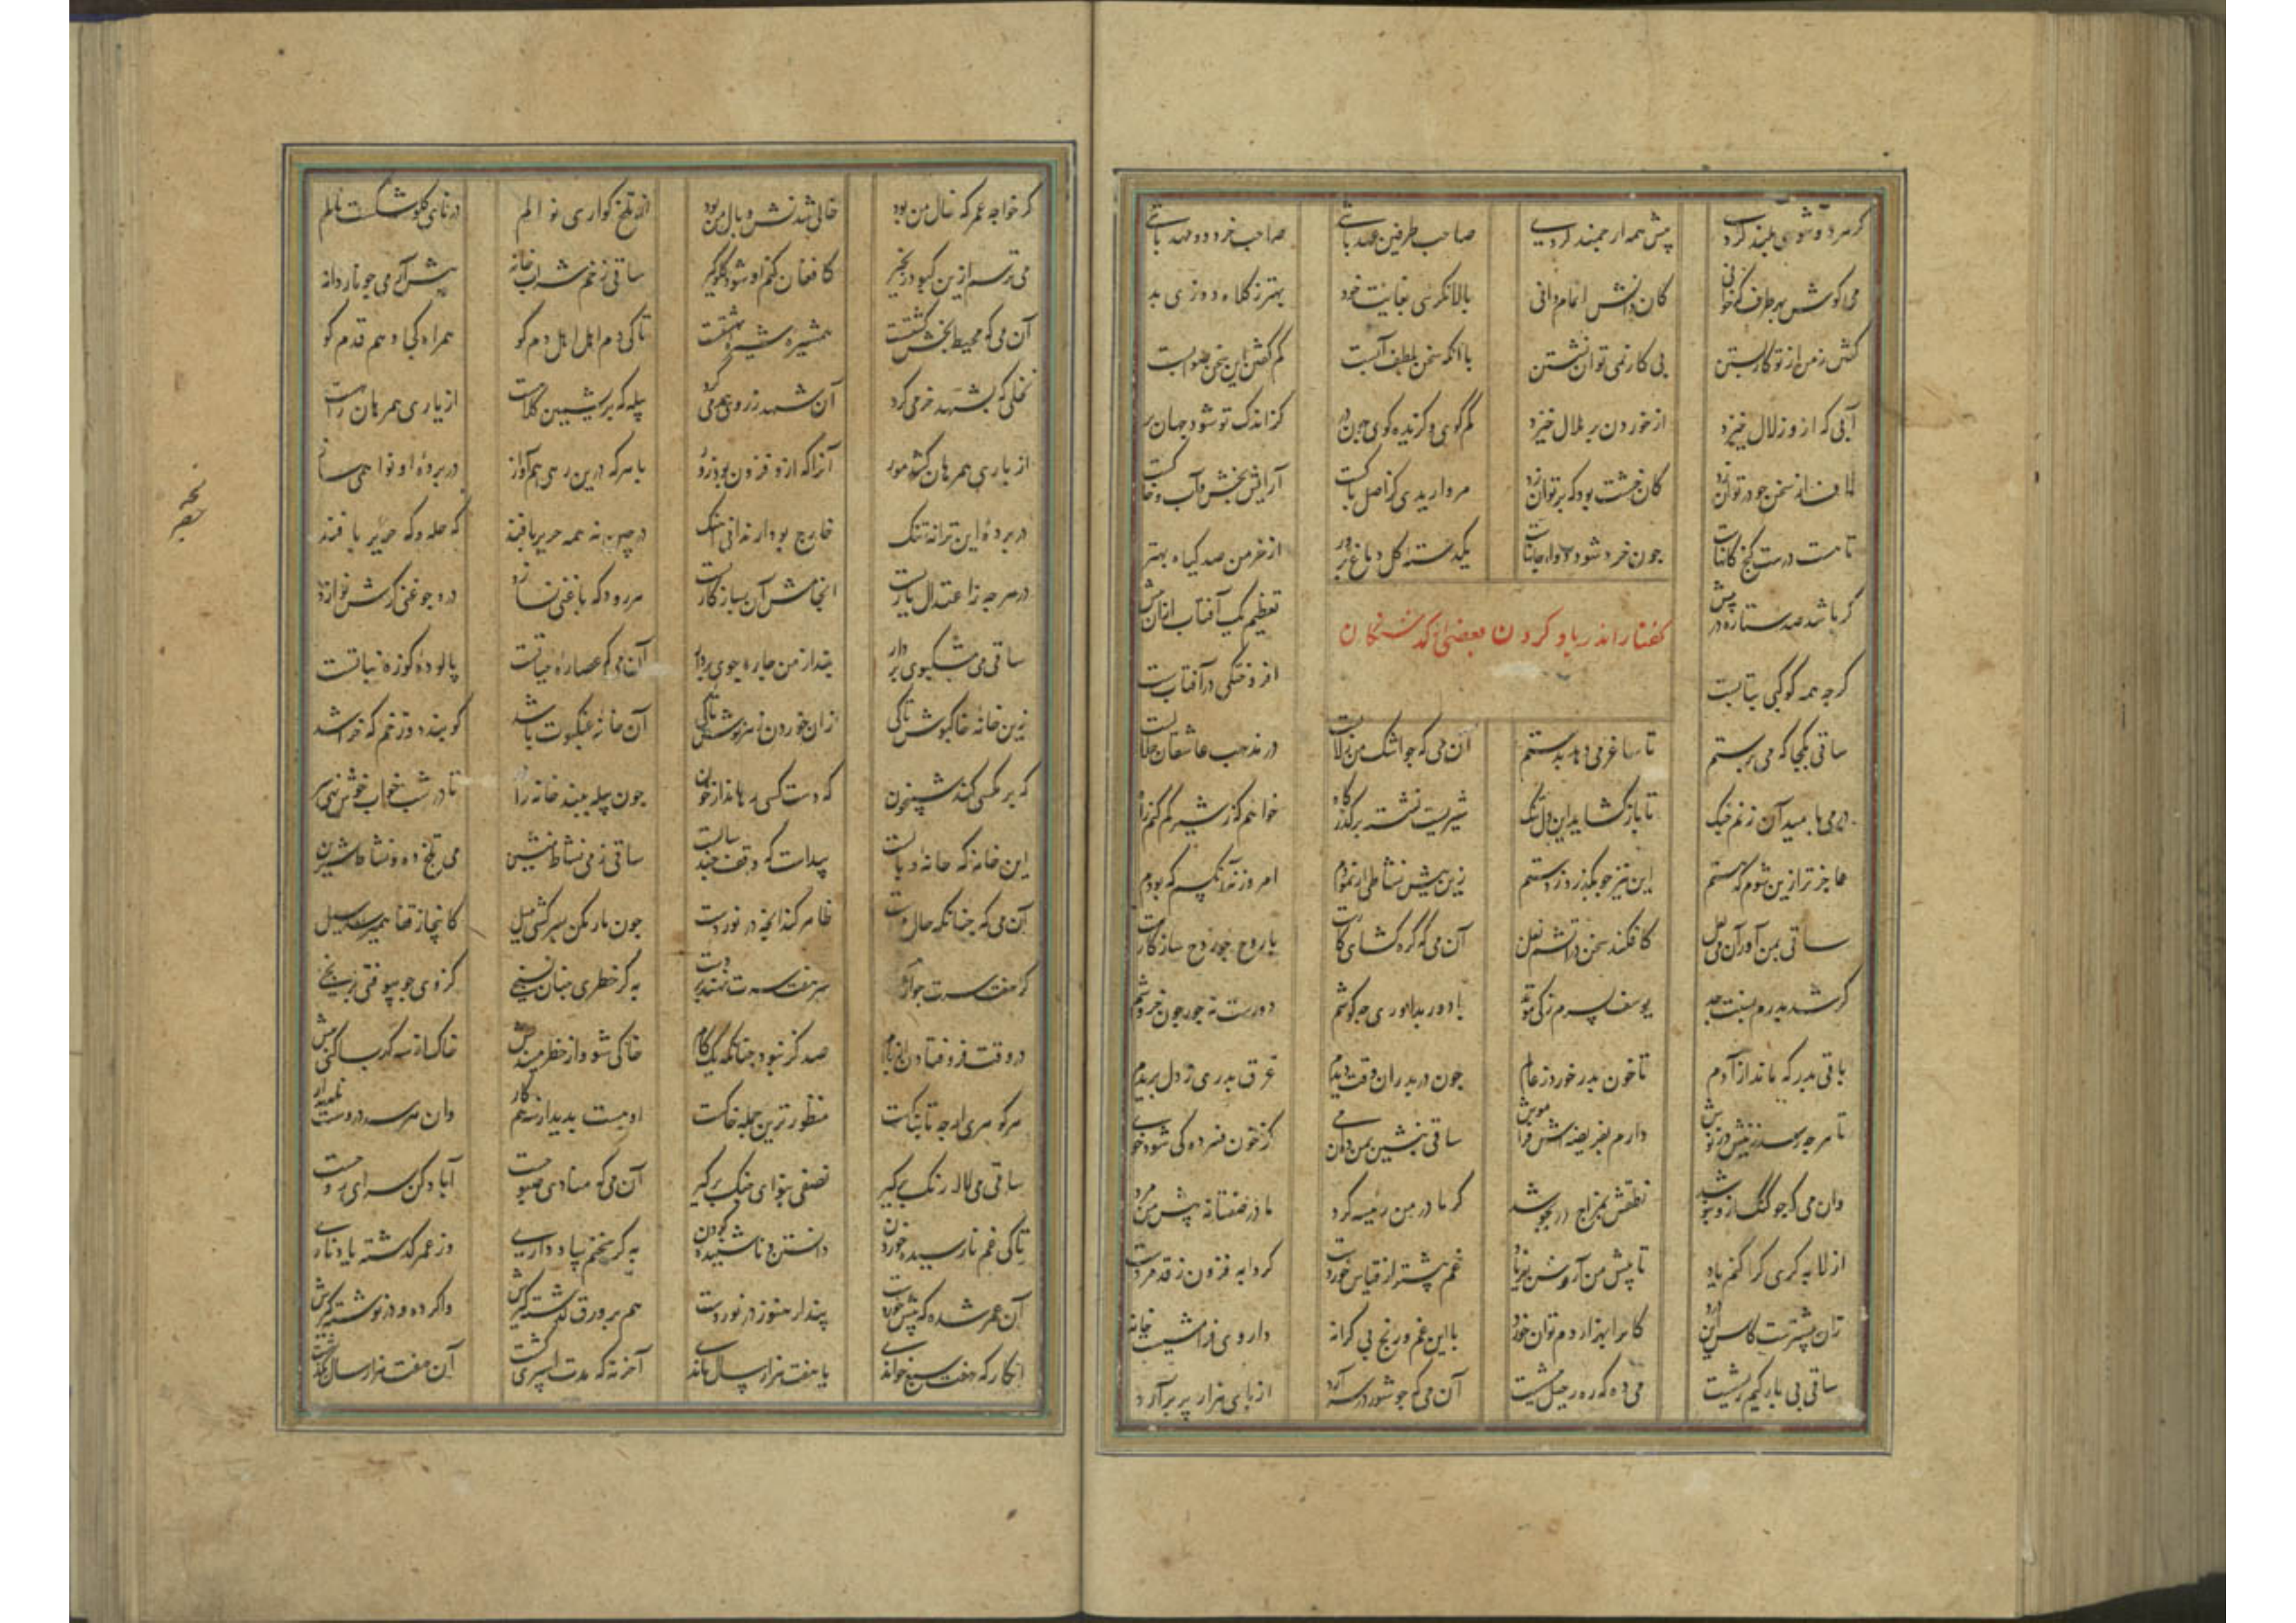 گر مرد وشوی بلند گردی پیش همه ارجمند گردی صاحب طرفین عهد باشی صاحب خرد و مهد باشی
می کوش بهر طرف که خوانی کان دانش را تمام دانی پالانگری بغایت خود بهتر ز کلاه دوزی بد
گفتن ز من از تو کار بستن بی کار نمی توان نشستن با آنکه سخن بلطف آبست کم گفتن این سخن صوابست
آبی که ازو زلال خیزد از خوردن پر ملال خیزد کم گوی و گزیده گوی چون در کز اندک تو شود جهان پر
لاف از سخن چو در توان زد کان خشت بود که پر توان زد مرواریدی کز اصل پاکست آرایش بخش آب و خاکست
تا هست درست گنج کانهاست چون خرد شود دوای جانهاست یکدسته گل دماغ پرور از خرمن صد گیاه بهتر
گر باشد صد ستاره در پیش تعظیم یک آفتاب ازان بیش
گفتار اندر یاد کردن بعضی از گذشتگان
گرچه همه کوکبی بتابست افروختگی در آفتابست
ساقی بکجا که می پرستم تا ساغر می دهد بدستم آن می که چو اشک من زلالست در مذهب عاشقان حلالست
در می بامید آن زنم چنگ تا باز گشاید این دل تنگ شیریست نشسته بر گذرگاه خواهم که ز شیر گم کنم راه
عاجزتر ازین شوم که هستم این نیز چو بگذرد ز دستم زین پیش نشاطی آزمودم امروز نه آنکسم که بودم
ساقی بمن آور آن می لعل کافکند سخن در آتشم نعل آن می که گره گشای کارست با روح چو روح سازگارست
گر شد پدرم بسنت جد یوسف پسر زکی موید با دور بداوری چه کوشم دورست نه جور چون خروشم
باقی پدر که ماند از آدم تا خون پدر خورد ز عالم چون در پدران رفته دیدم عرق پدری ز دل بریدم
تا هرچه رسد ز نیش در نوش دارم بفریضه تن فراموش ساقی بنشین بمن ده آن می کز خون فسرده کی شود خوی
وان می که چو گنگ ازو بنوشد نطقش بمزاج در بجوشد گر مادر من رئیسه کرد مادر صفتانه پیش من مرد
از لابه گری کرا کنم یاد تا پیش من آردش بفریاد غم بیشتر از قیاس خوردست گردابه فزون ز قد مردست
زان بیشترست کاس این درد کانرا بهزار دم توان خورد با این غم و رنج بی کرانه داروی فرامشیست چاره
ساقی پی بارگیم ریشست می ده که ره رحیل پیشست آن می که چو شور در سر آرد از پای هزار پر برآرد
گر خواجه عمر که خال من بود خالی شدنش وبال من بود از تلخ گواری نوالم در نای گلو شکست نالم
می ترسم ازین کبود زنجیر کافغان کنم او شود گلوگیر ساقی ز خم شراب خانه پیش آر می چو ناردانه
آن می که محیط بخش کشتست همشیره شیره بهشتست تا کی دم اهل اهل دم کو همراه کجا و هم قدم کو
نحلی که بشهد خرمی کرد آن شهد ز روی همدمی کرد پیله که بریشمین کلاهست از یاری همرهان راهست
از یاری همرهان کشد مور آنرا که ازو فزون بود زور با هر که درین رهی هم آواز در پرده او نوا همی ساز
در پرده این ترانه تنگ خارج بود ار ندانی آهنگ در چین نه همه حریر بافند گه حله و گه حریر بافند
در هرچه از اعتدال یاریست انجامش آن بسازگاریست هر رود که با غنی نسازد در چوغنی گرش نوازد
ساقی می مشکبوی بردار بنداز من چاره جوی بردار آن می که عصاره حیاتست پالوده کوزه نباتست
زین خانه خاکپوش تا کی زان خوردن زهر و نوش تا کی آن خانه عنکبوت باشد گو بندد و زخم گه خراشد
گه بر مگسی کند شبیخون گه دست کسی رهاند از خون چون پیله ببند خانه را در تا در شبخواب خوش نهی سر
این خانه که خانه وبالست پیداست که وقف چند سالست ساقی ز می نشاط بنشین می تلخ ده و نشاط شیرین
آن می که چنانکه حال مردست ظاهر کند آنچه در نوردست چون مار مکن بسرکشی میل کاینجا ز قفا همی رسد سیل
گر هفت سرت چو اژدها هست هر هفت سرت نهند بر دست به گر خطری چنان نسنجی کز وی چو بیوفتی برنجی
در وقت فرو فتادن از بام صد گز نبود چنانکه یک گام خاکی شو و از خطر میندیش خاک از سه گهر بساکنی بیش
هر گوهری ارچه تابناکست منظورترین جمله خاکست او هست پدید در سه همکار وان هر سه دروست ناپدیدار
ساقی می لاله رنگ برگیر نصفی بنوای چنگ برگیر آن می که منادی صبوحست آباد کن سرای روحست
تا کی غم نارسیده خوردن دانستن و ناشنیده کردن به گر سخنم بیاد داری وز عمر گذشته یاد ناری
آن عمر شده که پیش خوردست پندار هنوز در نوردست هم بر ورق گذشته گیرش واکرده و در نوشته گیرش
انگار که هفت سبع خوانی یا هفت هزار سال مانی آخر نه که مدت اسپری گشت آن هفت هزار سال بگذشت